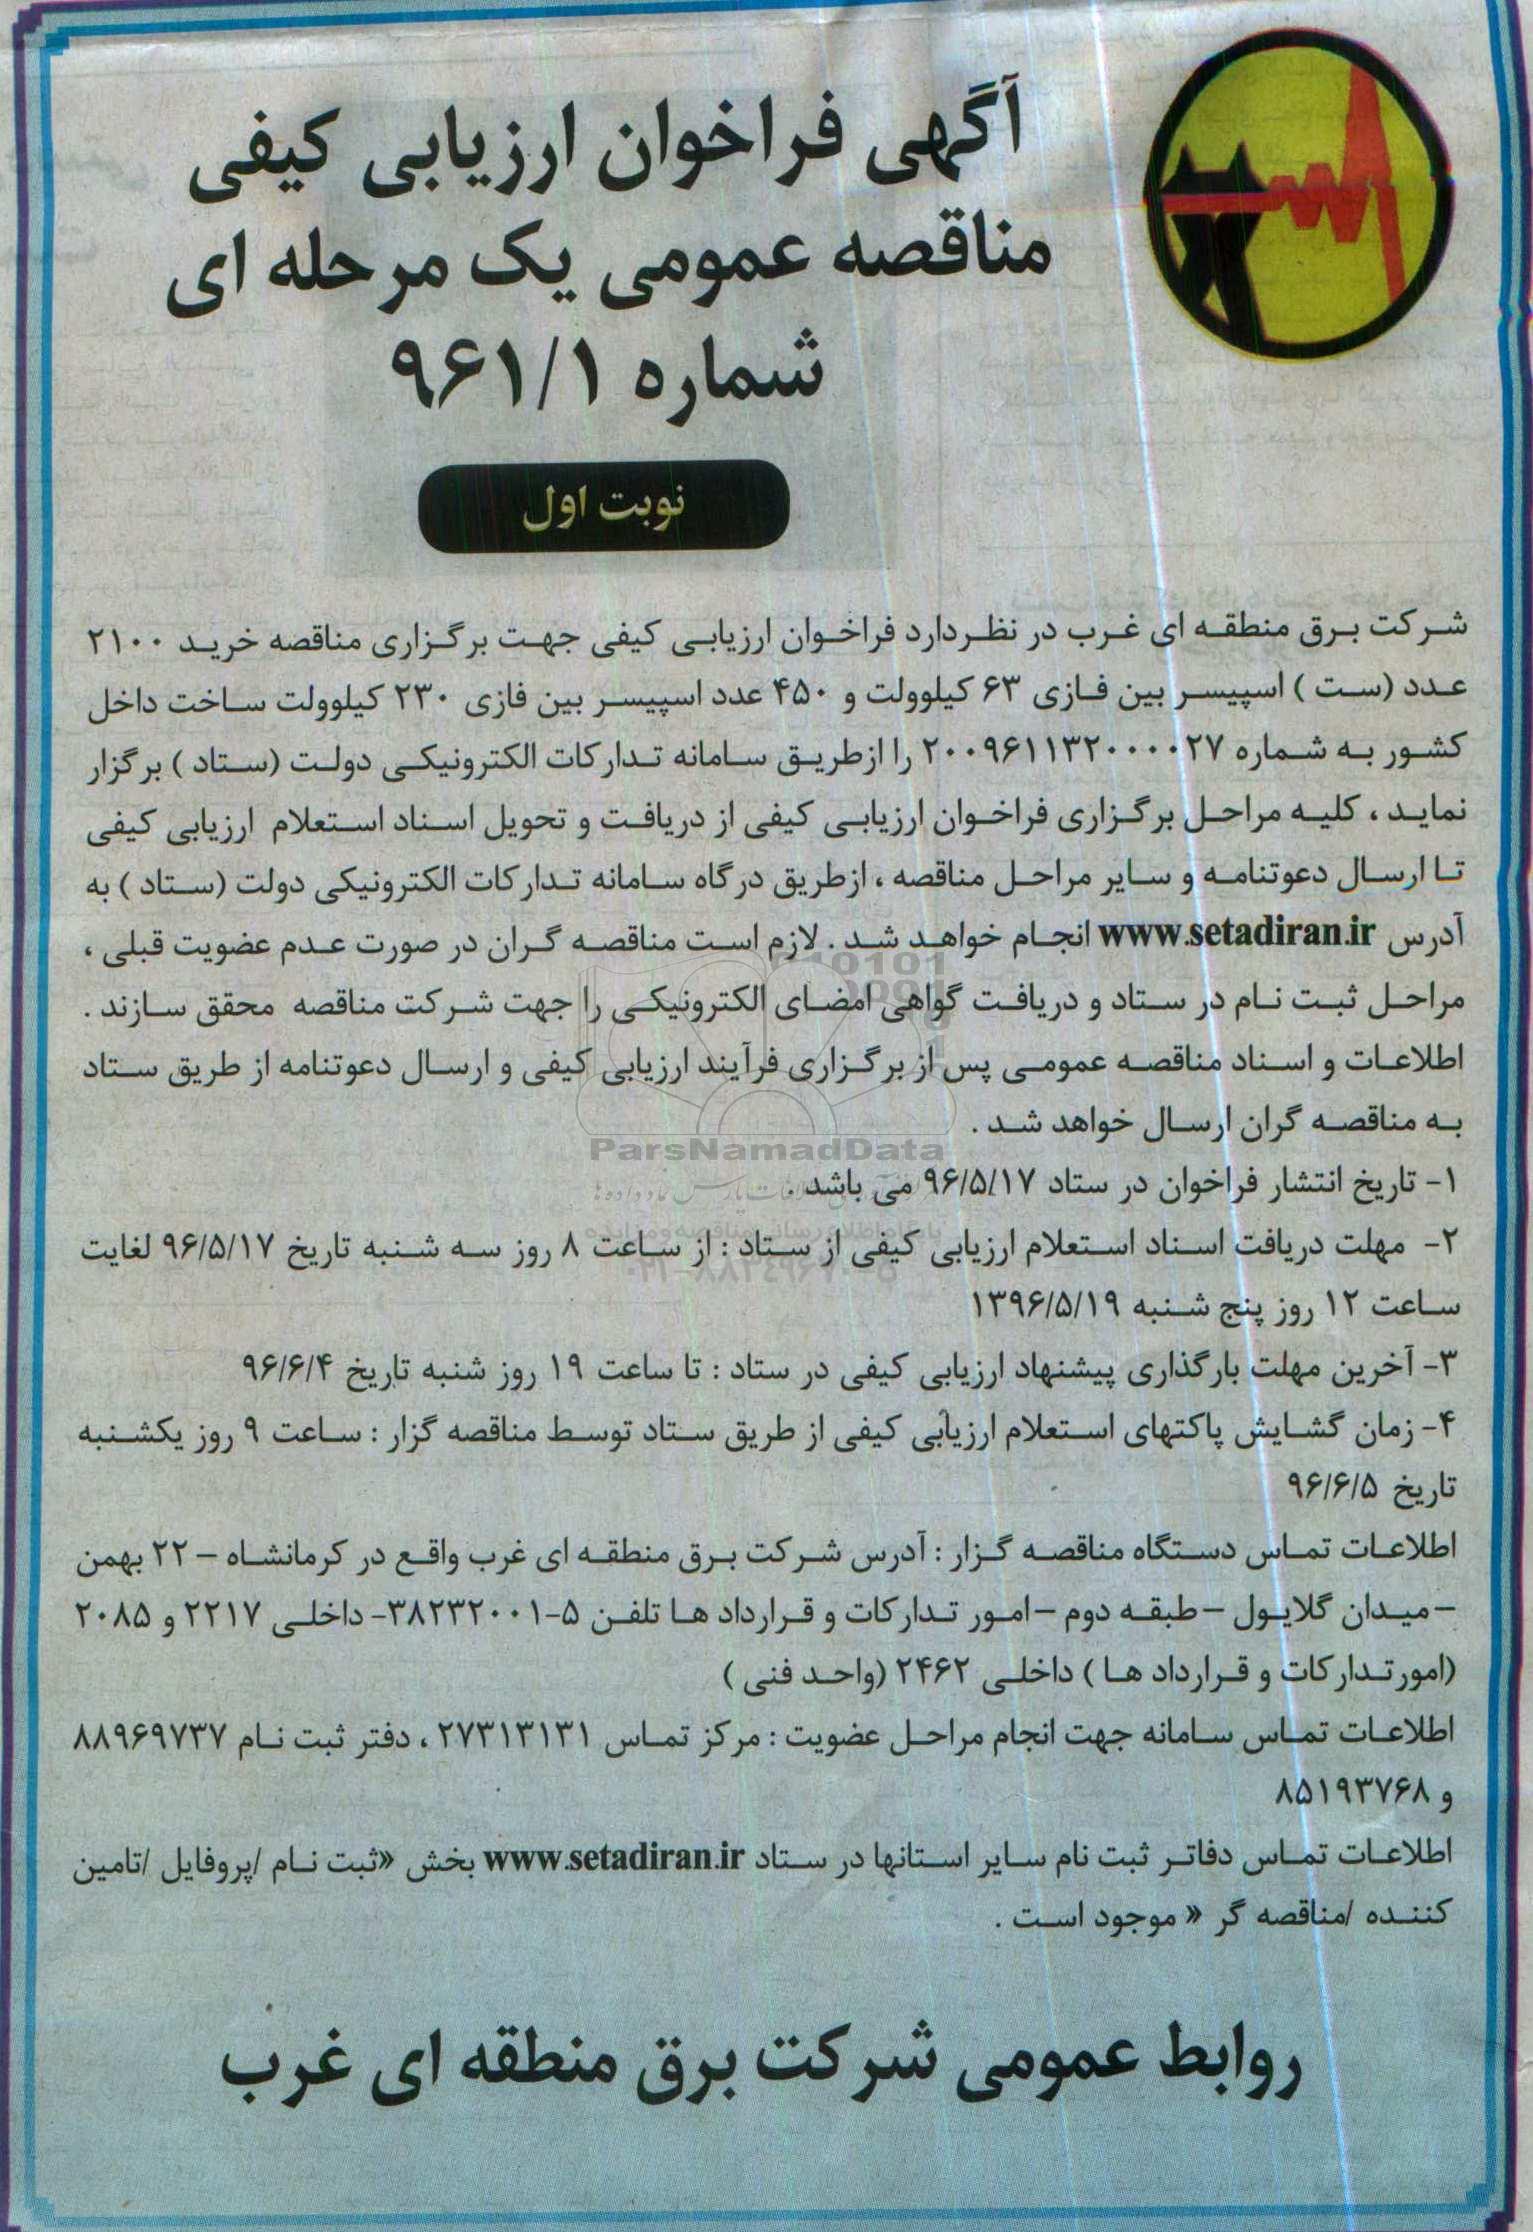 آگهی فراخوان ارزیابی کیفی
مناقصه عمومی یک مرحله ای
شماره ۹۶۱/۱
نوبت اول
شرکت برق منطقه ای غرب در نظردارد فراخوان ارزیابی کیفی جهت برگزاری مناقصه خرید ۲۱۰۰
عدد (ست ) اسپیسر بین فازی ۶۳ کیلوولت و ۴۵۰ عدد اسپیسر بین فازی ۲۳۰ کیلوولت ساخت داخل
کشور به شماره ۲۰۰۹۶۱۱۳۲۰۰۰۰۲۷ را ازطریق سامانه تدارکات الکترونیکی دولت (ستاد ) برگزار
نماید ، کلیه مراحل برگزاری فراخوان ارزیابی کیفی از دریافت و تحویل اسناد استعلام ارزیابی کیفی
تا ارسال دعوتنامه و سایر مراحل مناقصه ، ازطریق درگاه سامانه تدارکات الکترونیکی دولت (ستاد ) به
آدرس www.setadiran.ir انجام خواهد شد . لازم است مناقصه گران در صورت عدم عضویت قبلی ،
مراحل ثبت نام در ستاد و دریافت گواهی امضای الکترونیکی را جهت شرکت مناقصه محقق سازند .
اطلاعات و اسناد مناقصه عمومی پس از برگزاری فرآیند ارزیابی کیفی و ارسال دعوتنامه از طریق ستاد
به مناقصه گران ارسال خواهد شد .
ParsNamadData
۱- تاریخ انتشار فراخوان در ستاد ۹۶/۵/۱۷ می باشد .
۲- مهلت دریافت اسناد استعلام ارزیابی کیفی از ستاد : از ساعت ۸ روز سه شنبه تاریخ ۹۶/۵/۱۷ لغایت
ساعت ۱۲ روز پنج شنبه ۱۳۹۶/۵/۱۹
۳- آخرین مهلت بارگذاری پیشنهاد ارزیابی کیفی در ستاد : تا ساعت ۱۹ روز شنبه تاریخ ۹۶/۶/۴
۴- زمان گشایش پاکتهای استعلام ارزیابی کیفی از طریق ستاد توسط مناقصه گزار : ساعت ۹ روز یکشنبه
تاریخ ۹۶/۶/۵
اطلاعات تماس دستگاه مناقصه گزار : آدرس شرکت برق منطقه ای غرب واقع در کرمانشاه – ۲۲ بهمن
–میدان گلایول –طبقه دوم –امور تدارکات و قرارداد ها تلفن ۵-۳۸۲۳۲۰۰۱- داخلی ۲۲۱۷ و ۲۰۸۵
(امورتدارکات و قرارداد ها ) داخلی ۲۴۶۲ (واحد فنی )
اطلاعات تماس سامانه جهت انجام مراحل عضویت : مرکز تماس ۲۷۳۱۳۱۳۱ ، دفتر ثبت نام ۸۸۹۶۹۷۳۷
و ۸۵۱۹۳۷۶۸
اطلاعات تماس دفاتر ثبت نام سایر استانها در ستاد www.setadiran.ir بخش «ثبت نام /پروفایل /تامین
کننده /مناقصه گر « موجود است .
روابط عمومی شرکت برق منطقه ای غرب